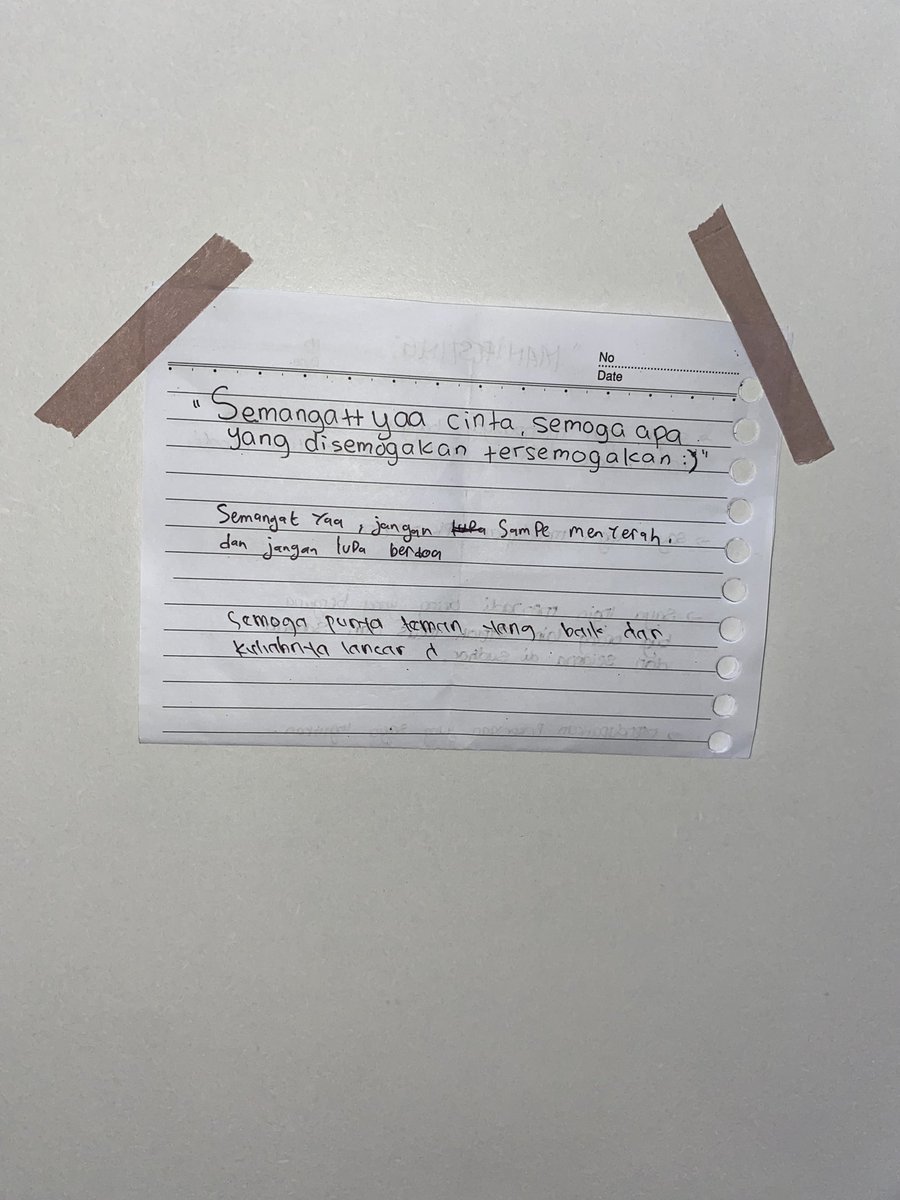 No
Date
"Semangatt yaa cinta, semoga apa
yang disemogakan tersemogakan :)"
Semangat Yaa, jangan lupa sampe menyerah.
dan jangan lupa berdoa
Semoga punya teman yang baik dan
kuliahnya lancar d